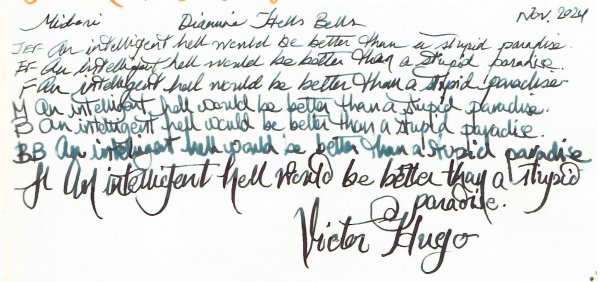 Midori Diamine Hells Bells Nov. 2024
JEF An intelligent hell would be better than a stupid paradise.
EF An intelligent hell would be better than a stupid paradise.
F An intelligent hell would be better than a stupid paradise
M An intelligent hell would be better than a stupid paradise.
B An intelligent hell would be better than a stupid paradise.
BB An intelligent hell would be better than a stupid paradise
An intelligent hell would be better than a stupid
paradise.
Victor Hugo